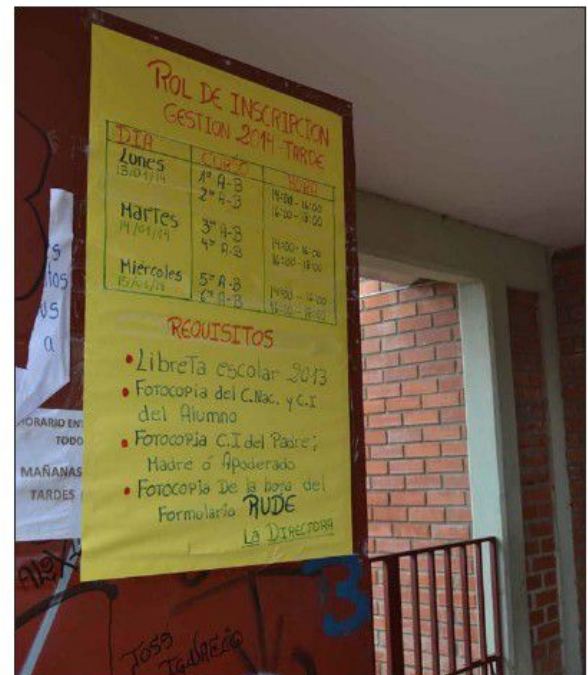 ROL DE INSCRIPCION
GESTION 2014 TARDE
DIA CURSO HORA
Lunes 1º A-B 14:00 - 16:00
13/01/14 2º A-B 16:00 - 18:00
Martes 3º A-B 14:00 - 16:00
14/01/14 4º A-B 16:00 - 18:00
Miércoles 5º A-B 14:00 - 16:00
15/01/14 6º A-B 16:00 - 18:00
REQUISITOS
• LibreTa escolar 2013
• Fotocopia del C.Nac. y C.I
del Alumno
• Fotocopia C.I del Padre;
Madre ó Apoderado
• Fotocopia De la hoja del
Formulario RUDE
LA DIRECTORA
HORARIO
TODO
MAÑANAS
TARDES
ALEX
JOSS